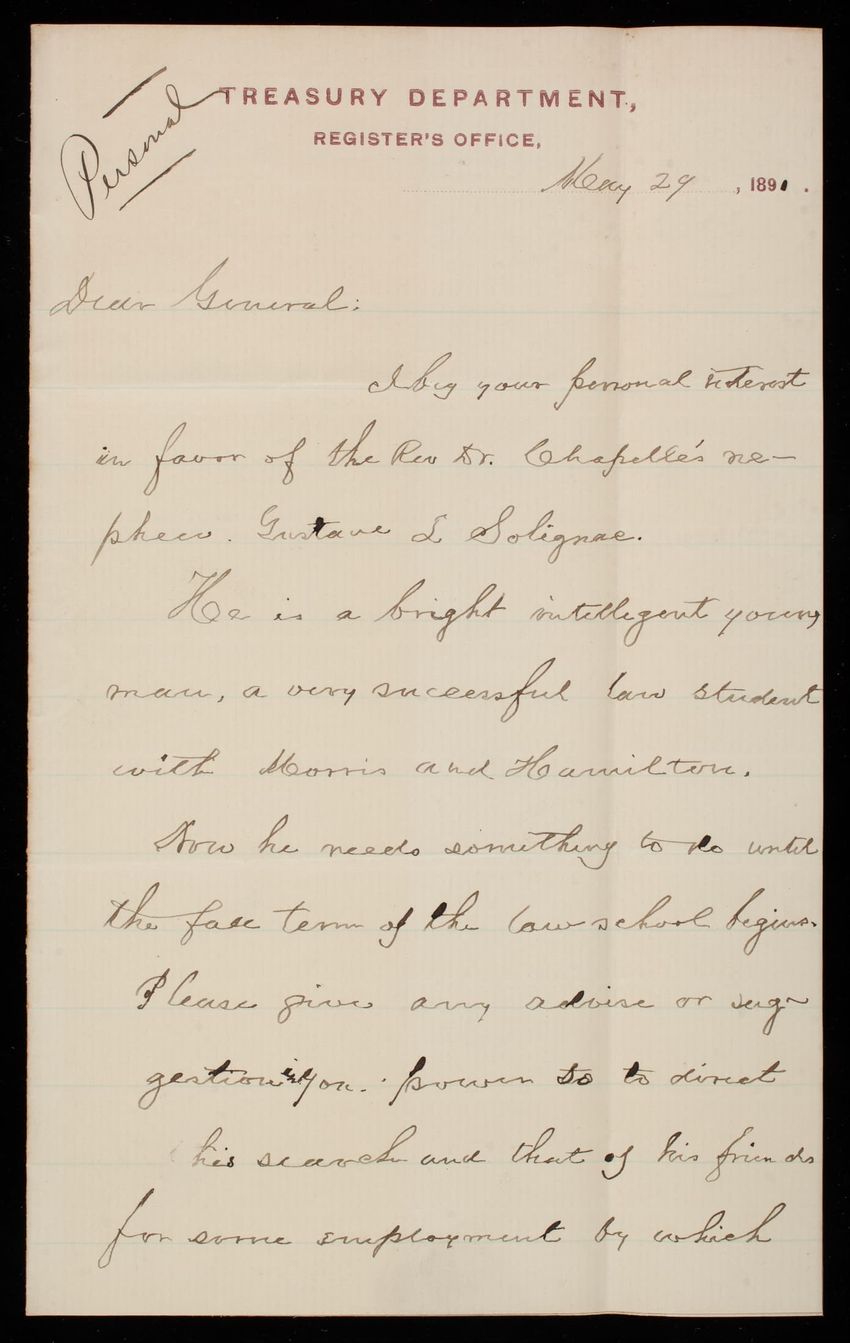 Personal
TREASURY DEPARTMENT,
REGISTER'S OFFICE,
May 29, 1891.
Dear General:
I beg your personal interest
in favor of the Rev Dr. Chapelle's ne-
phew. Gustave L Solignac.
He is a bright intellegent young
man, a very successful law student
with Morris and Hamilton.
Now he needs something to do until
the fall term of the law school begins.
Please give any advise or sug-
gestion in your power so to direct
his search and that of his friends
for some employment by which